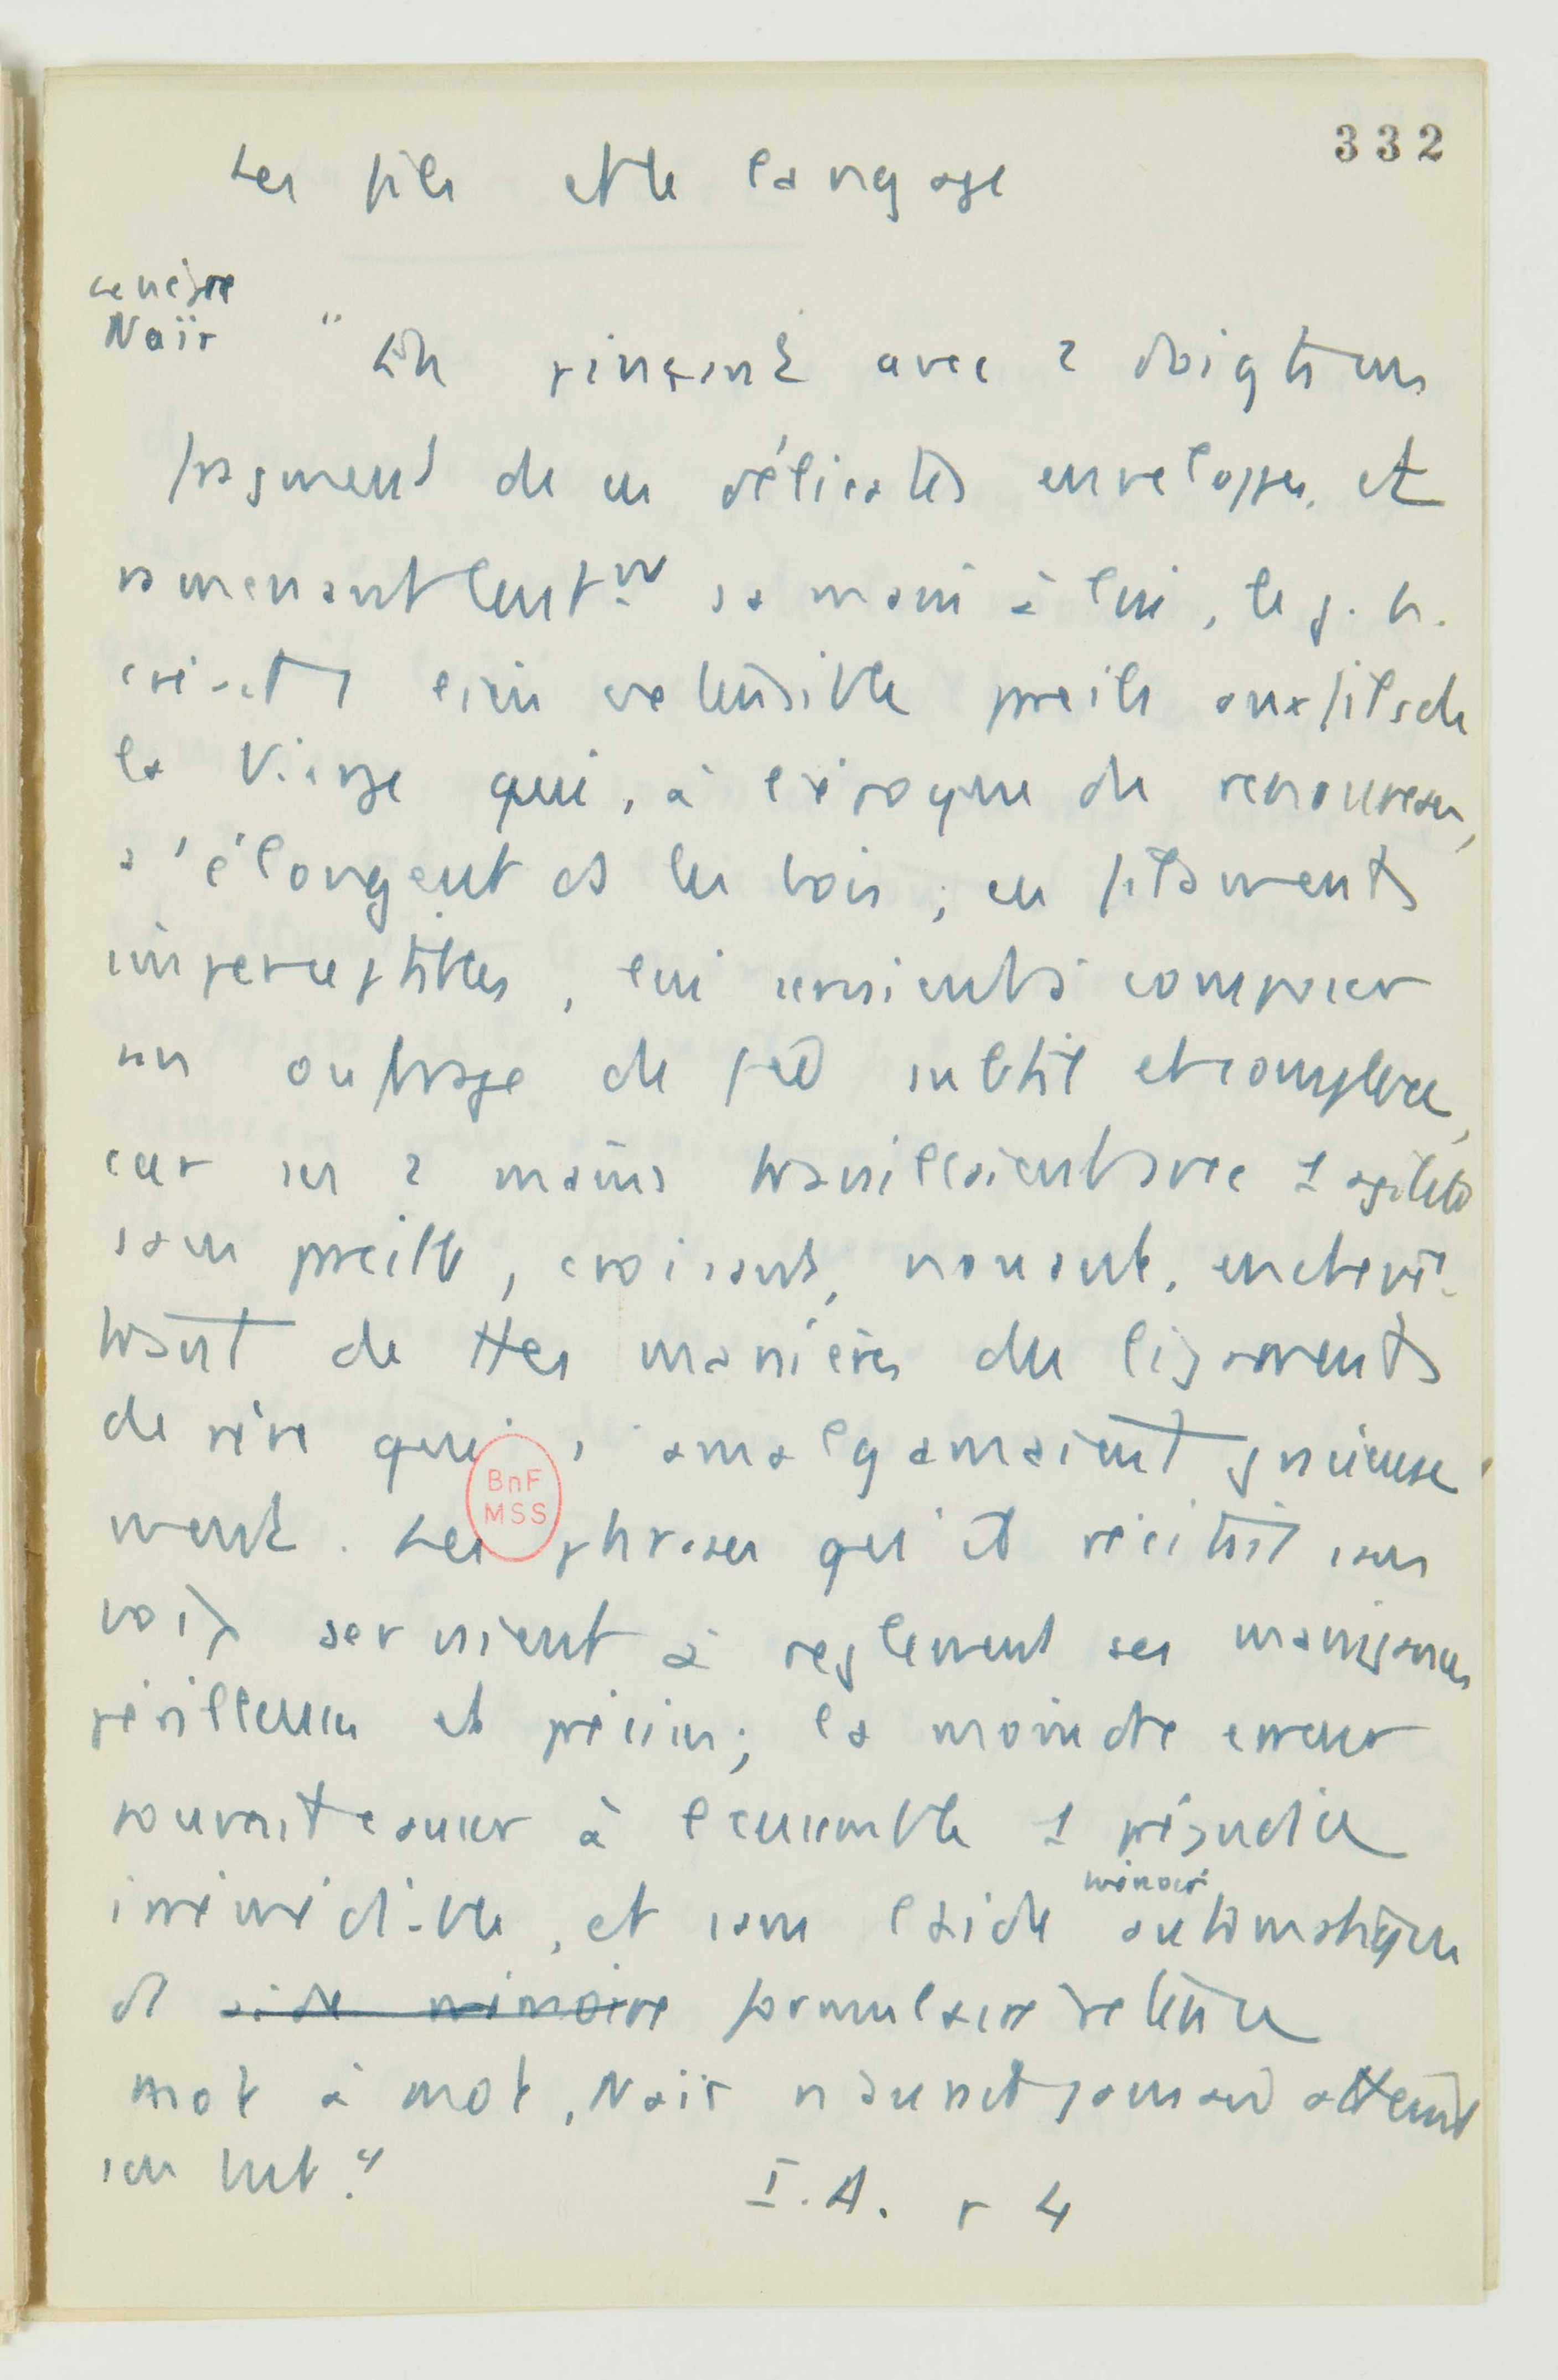 332
Les fils et le langage
Le nègre
Naïr
"En pinçant avec 2 doigts un
fragment de ces délicates enveloppes et
ramenant lentmt sa main à lui, le j. h.
créait 1 lien extensible pareil aux fils de
la Vierge qui, à l'époque du renouveau,
s'élongent ds les bois ; ces filaments
imperceptibles, lui servaient à composer
un ouvrage de fée subtil et complexe,
car ses 2 mains travaillaient avec 1 agilité
sans pareille, croisant, nouant, enchevê-
trant de ttes manières les ligaments
de rêve qui s'amalgamaient gracieuse
ment. Les phrases qu'il récitait sans
voix servaient à réglementer ses manigances
périlleuses et précises ; la moindre erreur
pouvait causer à l'ensemble 1 préjudice
irrémédiable, et sans l'aide automatique
mémoire
d' aide mémoire formulaire retenu
mot à mot, Naïr n'aurait jamais atteint
son but."
I.A. p 4
BnF
MSS